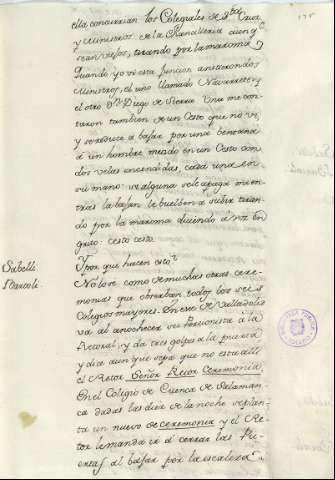 ella concurrian los Colegiales de Sta Cruz
y Ministros de la Chancilleria aunq
sean viejos, tirando por la maroma
Quando yo vi esta funcion
Ministros, el uno llamado Navarrete y
el otro Dn Diego de Sierra. Una me con
taron tambien de un Cesto que no vi,
y se reduce a bajar por una bentana
a un hombre metido en un Cesto con
dos velas encendidas, cada una en
su mano: si alguna se le apaga mien
tras la bajan le buelben a subir tiran
do por la maroma diciendo a voz en
grito: cesto cesto
Sabelli
Narcoli
Y por que hacen eso?
No lo se como de muchas otras cere-
monias que obserban todos los seis
Colegios mayores. En este de Valladolid
va al anochecer un Porcionista a la
Rectoral, y da tres golpes a la puerta
y dice aun que sepa que no esta alli
el Retor Señor Retor Ceremonia.
En el Colegio de Cuenca de Salaman
ca dadas las diez de la noche se plan
ta un nuevo de ceremonia y el Re
tor le manda ir a cerrar las Pu
ertas, al bajar por la escalera